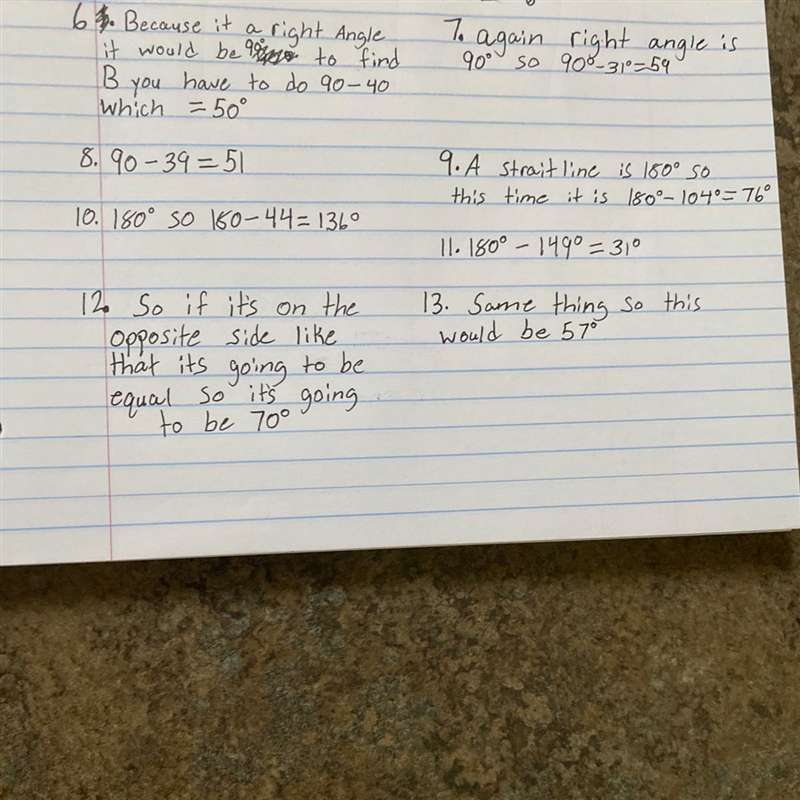 6. Because it a right Angle
it would be 90° to find
B you have to do 90-40
which = 50°
7. again right angle is
90° so 90°-31°=59
8. 90-39=51
9. A strait line is 180° so
this time it is 180°-104°=76°
10. 180° so 180-44=136°
11. 180°-149°=31°
12. So if it's on the
opposite side like
that its going to be
equal so it's going
to be 70°
13. Same thing so this
would be 57°